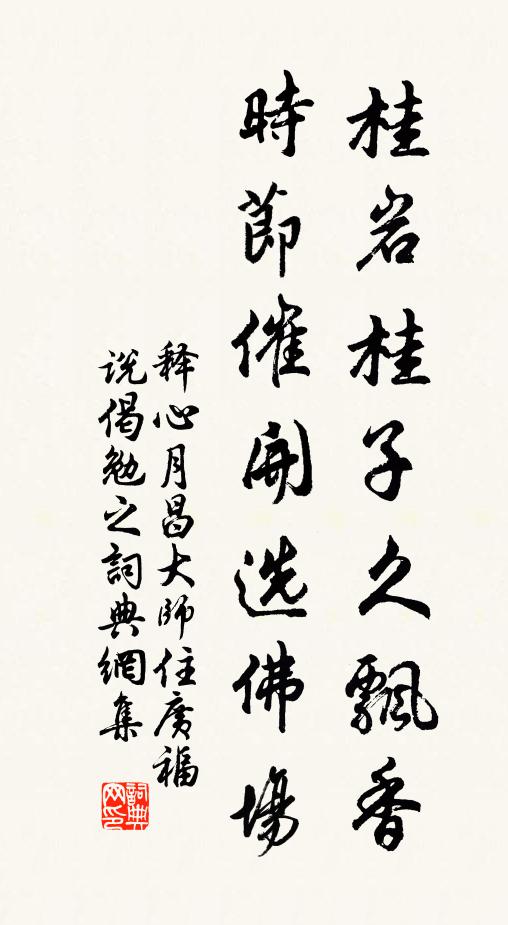 桂岩桂子久飄香
時節催開选佛場
释心月昌大師住廣福
说偈勉之詞典網集
詞典网印